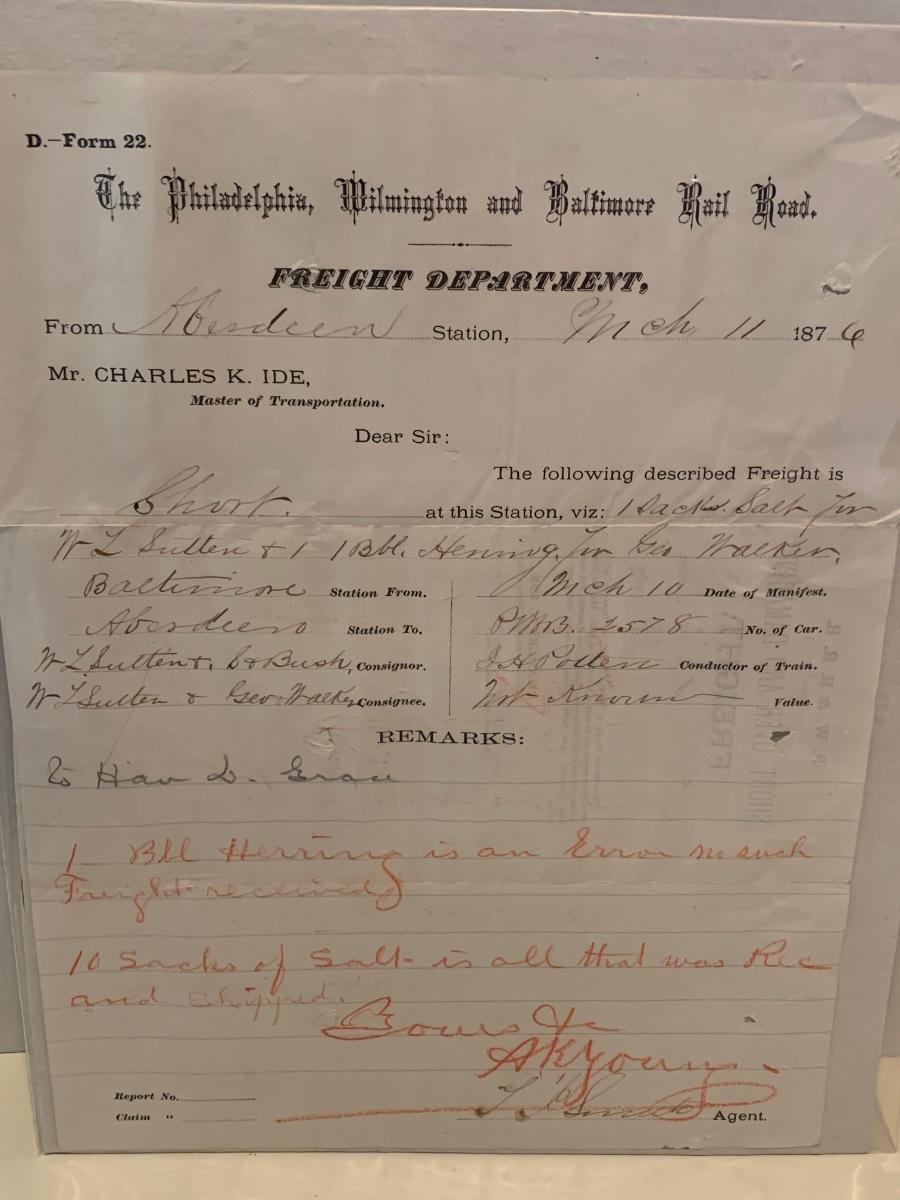 D.—Form 22.
The Philadelphia, Wilmington and Baltimore Rail Road.
FREIGHT DEPARTMENT,
From Aberdeen Station, Mch 11 1876
Mr. CHARLES K. IDE,
Master of Transportation.
Dear Sir:
The following described Freight is
Short. at this Station, viz: 1 Sacks Salt for
W L Sutten & 1 1 Bbl. Herring for Geo Walker.
Baltimore Station From. Mch 10 Date of Manifest.
Aberdeen Station To. PWB. 2578 No. of Car.
W L Sutten & S & Bush, Consignor. Conductor of Train.
W L Sutten & Geo Walker Consignee. Not Known Value.
REMARKS:
to Hav D. Grace
1 Bll Herring is an Error no such
Freight received
10 Sacks of Salt is all that was Rec
and Shipped.
Yours &c
A K Young
Report No.
Claim "
Agent.